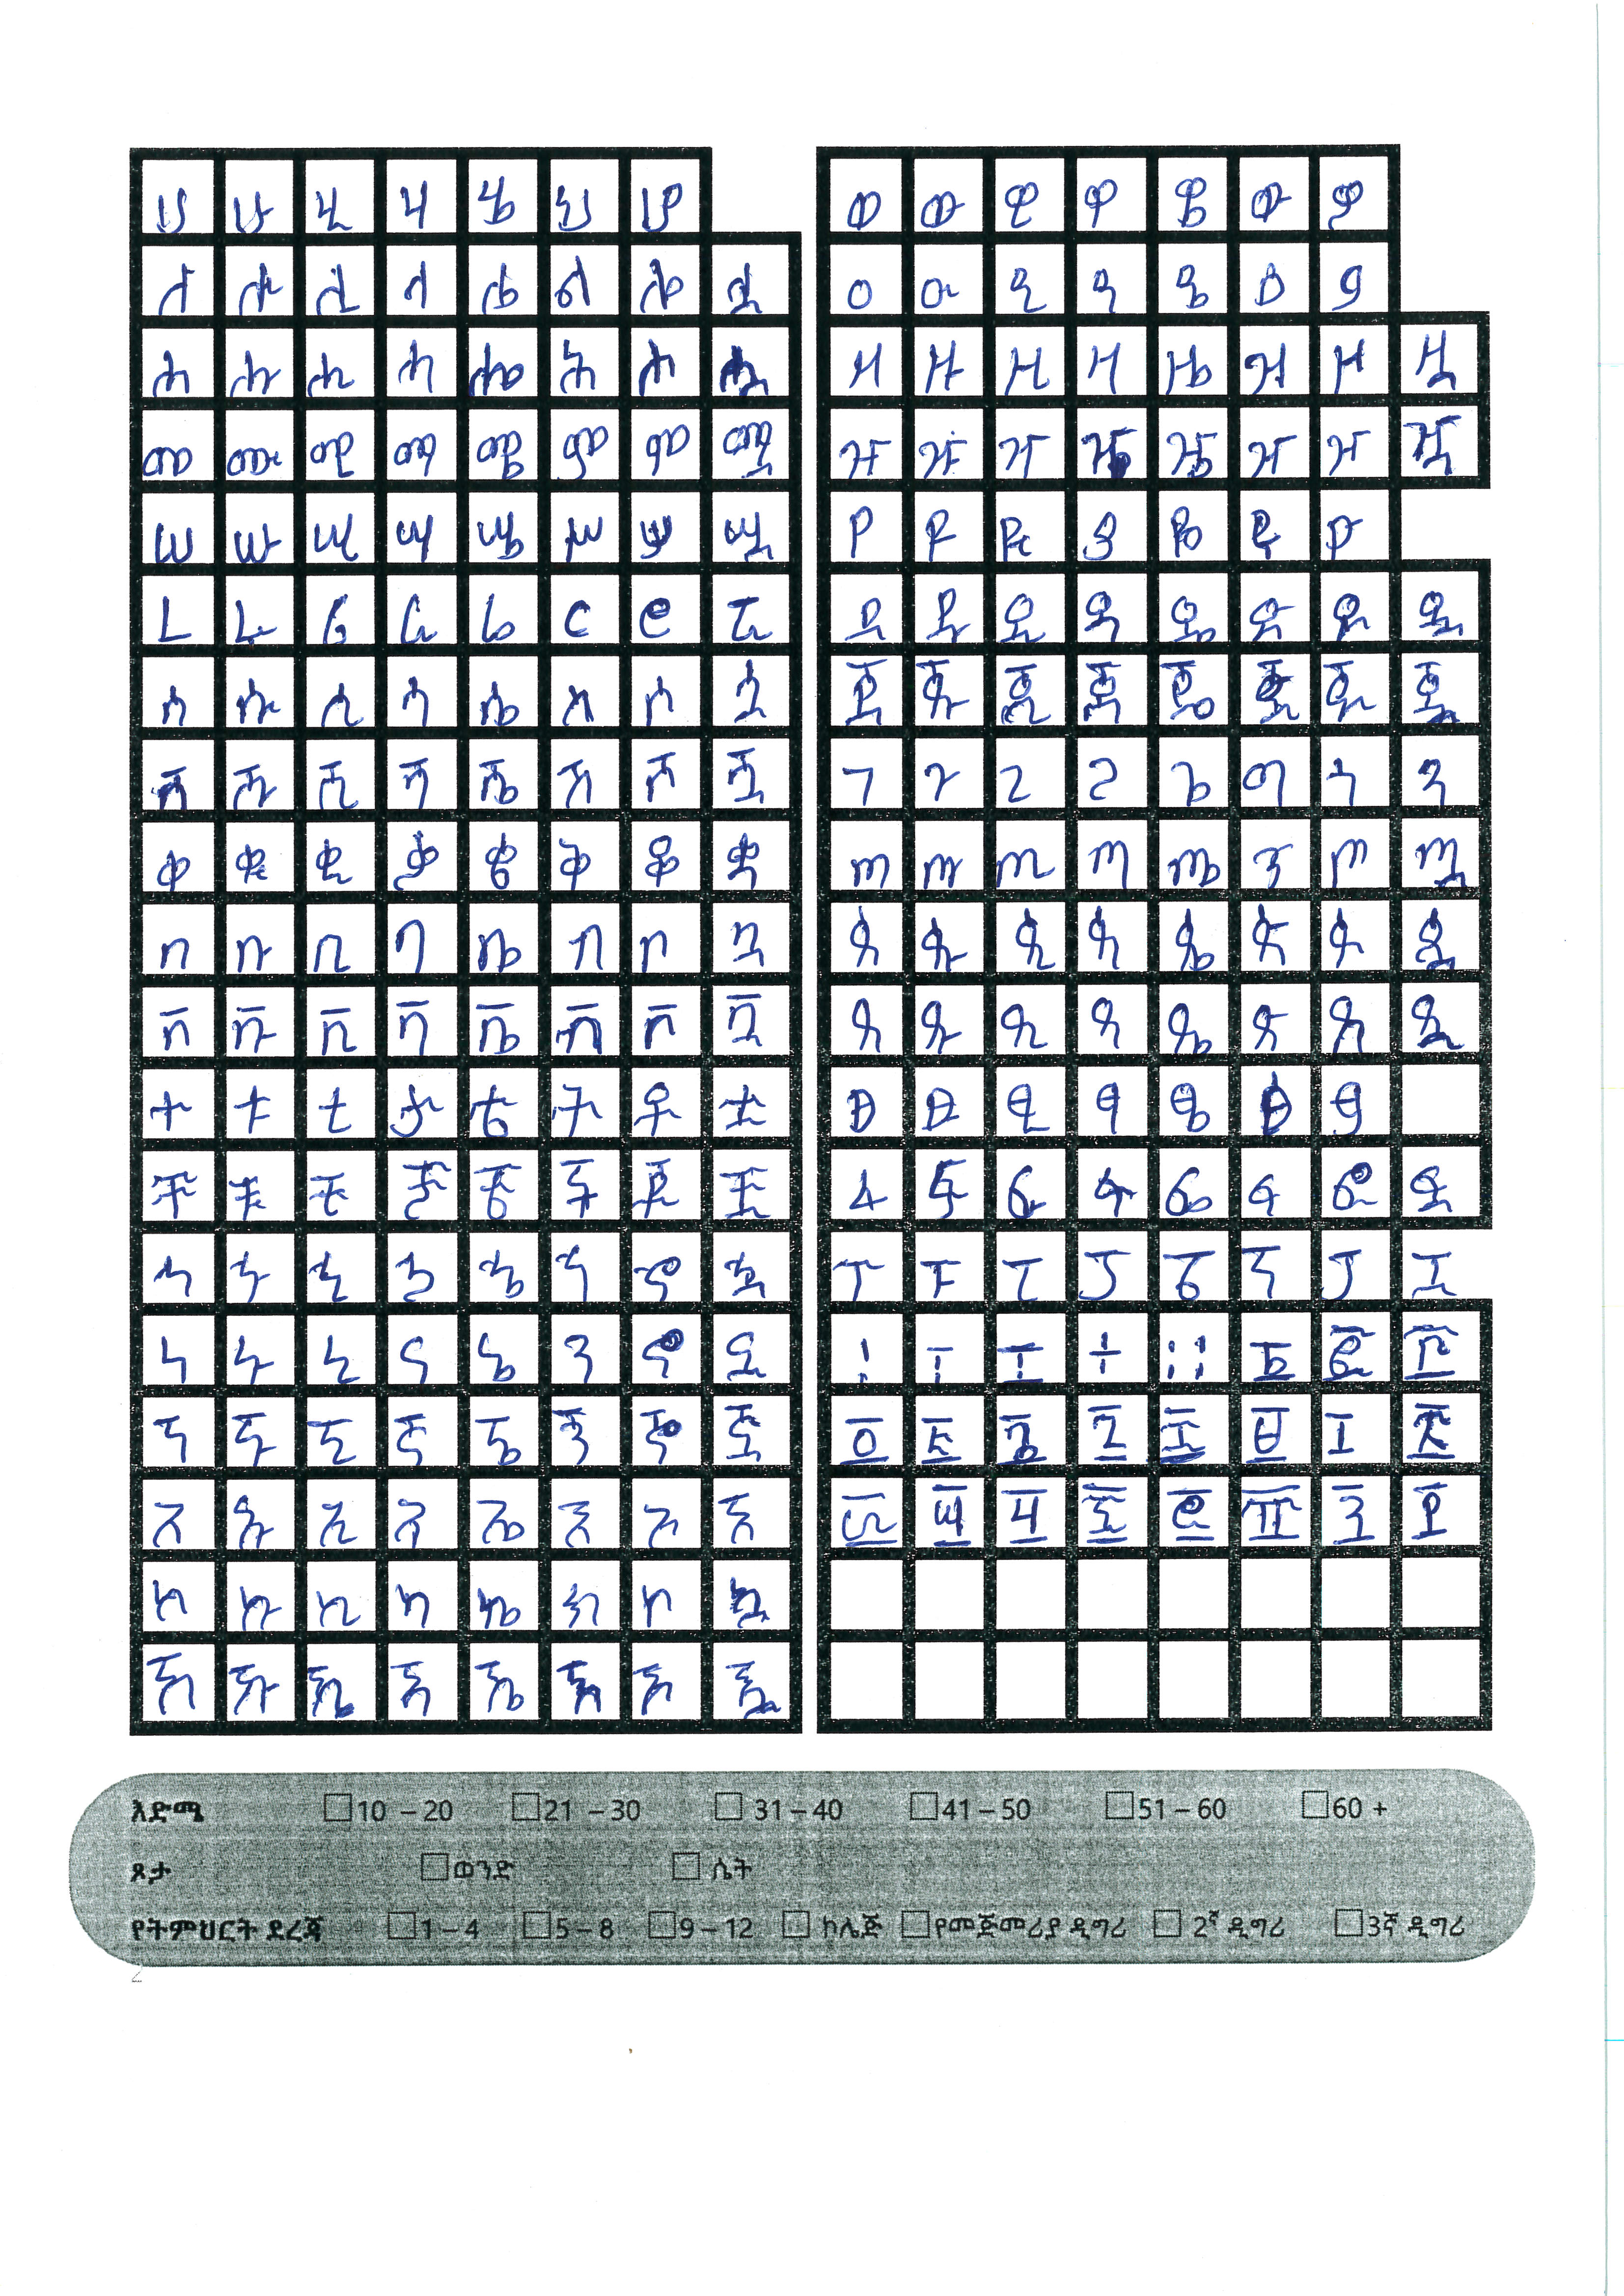 ሀ ሁ ሂ ሃ ሄ ህ ሆ
ለ ሉ ሊ ላ ሌ ል ሎ ሏ
ሐ ሑ ሒ ሓ ሔ ሕ ሖ ሗ
መ ሙ ሚ ማ ሜ ም ሞ ሟ
ሠ ሡ ሢ ሣ ሤ ሥ ሦ ሧ
ረ ሩ ሪ ራ ሬ ር ሮ ሯ
ሰ ሱ ሲ ሳ ሴ ስ ሶ ሷ
ሸ ሹ ሺ ሻ ሼ ሽ ሾ ሿ
ቀ ቁ ቂ ቃ ቄ ቅ ቆ ቋ
በ ቡ ቢ ባ ቤ ብ ቦ ቧ
ቨ ቩ ቪ ቫ ቬ ቭ ቮ ቯ
ተ ቱ ቲ ታ ቴ ት ቶ ቷ
ቸ ቹ ቺ ቻ ቼ ች ቾ ቿ
ኀ ኁ ኂ ኃ ኄ ኅ ኆ ኋ
ነ ኑ ኒ ና ኔ ን ኖ ኗ
ኘ ኙ ኚ ኛ ኜ ኝ ኞ ኟ
አ ኡ ኢ ኣ ኤ እ ኦ ኧ
ከ ኩ ኪ ካ ኬ ክ ኮ ኳ
ኸ ኹ ኺ ኻ ኼ ኽ ኾ ዃ
ወ ዉ ዊ ዋ ዌ ው ዎ
ዐ ዑ ዒ ዓ ዔ ዕ ዖ
ዘ ዙ ዚ ዛ ዜ ዝ ዞ ዟ
ዠ ዡ ዢ ዣ ዤ ዥ ዦ ዧ
የ ዩ ዪ ያ ዬ ይ ዮ
ደ ዱ ዲ ዳ ዴ ድ ዶ ዷ
ጀ ጁ ጂ ጃ ጄ ጅ ጆ ጇ
ገ ጉ ጊ ጋ ጌ ግ ጎ ጓ
ጠ ጡ ጢ ጣ ጤ ጥ ጦ ጧ
ጰ ጱ ጲ ጳ ጴ ጵ ጶ ጷ
ጸ ጹ ጺ ጻ ጼ ጽ ጾ ጿ
ፀ ፁ ፂ ፃ ፄ ፅ ፆ
ፈ ፉ ፊ ፋ ፌ ፍ ፎ ፏ
ፐ ፑ ፒ ፓ ፔ ፕ ፖ ፗ
! ፩ ፪ ፫ ፬
እድሜ 10 – 20 21 – 30 31 – 40 41 – 50 51 – 60 60 +
ጾታ ወንድ ሴት
የትምህርት ደረጃ 1 – 4 5 – 8 9 – 12 ኮሌጅ የመጅመሪያ ዲግሪ 2ኛ ዲግሪ 3ኛ ዲግሪ